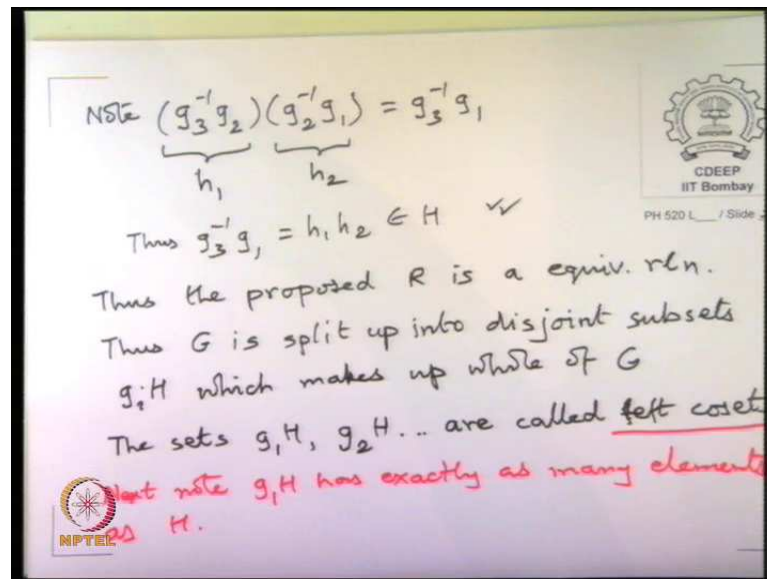 Note (g₃⁻¹g₂)(g₂⁻¹g₁) = g₃⁻¹g₁
h₁ h₂
CDEEP
IIT Bombay
PH 520 L___ / Slide
Thus g₃⁻¹g₁ = h₁h₂ ∈ H ✓✓
Thus the proposed R is a equiv. rln.
Thus G is split up into disjoint subsets
gᵢH which makes up whole of G
The sets g₁H, g₂H... are called left coset
Next note g₁H has exactly as many elements
as H.
NPTEL